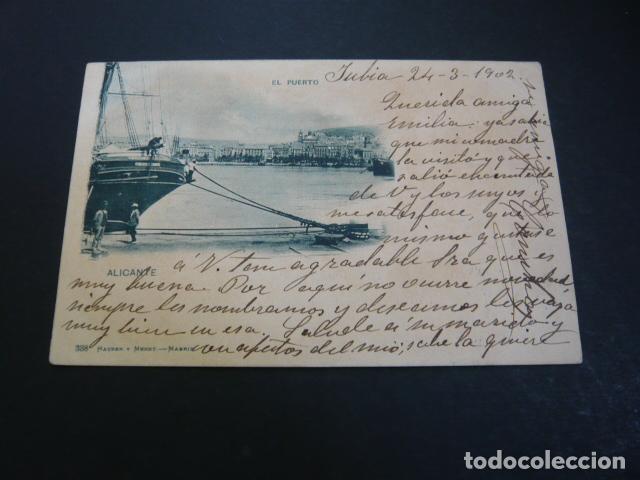 EL PUERTO
Jubia 24-3-1902.
Querida amiga
Emilia: ya sabia
que mi comadre
la visitó y que
salió encantada
de V. y los suyos
me satisface, que
mismo
á V. tan agradable Sra que es
muy buena. Por aqui no ocurre novedad,
siempre les nombramos y deseamos les vaya
muy bien en esa. Salude á su marido y
con afectos del mio, sabe la quiere
ALICANTE
338 HAUSER Y MENET.—MADRID
todocoleccion
todocoleccion.net